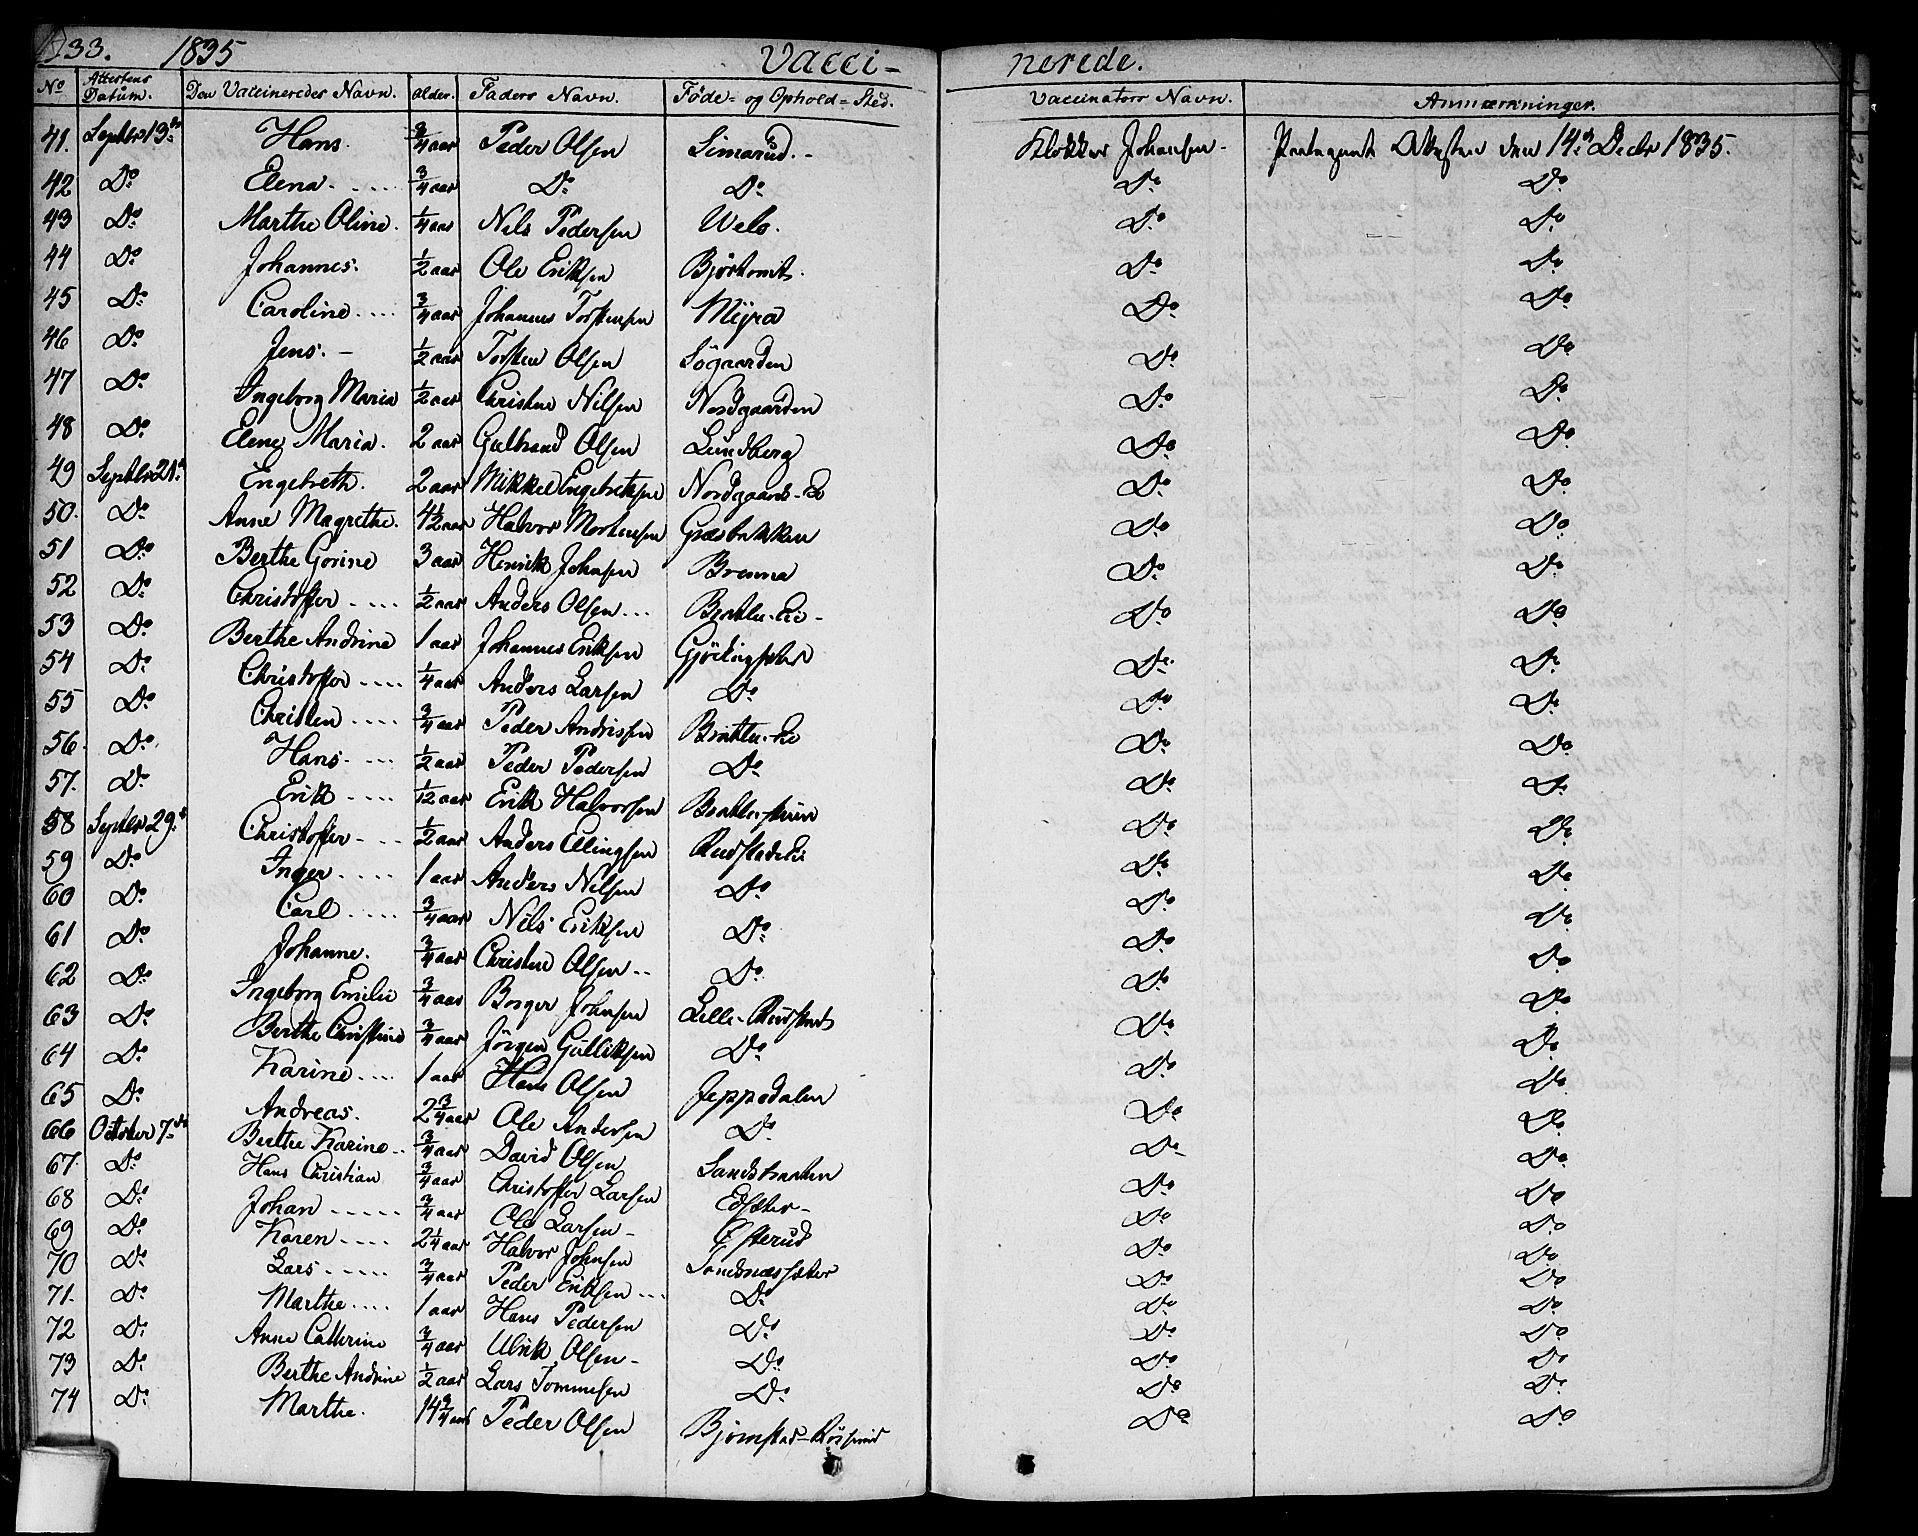 133. 1835 Vacci- nerede.
No Attestens Datum. Den Vaccineredes Navn. alder. Faders Navn. Føde- og Ophold-Sted. Vaccinators Navn. Anmærkninger.
41. Septbr 13de Hans. 3/4 aar Peder Olsen Simarud. - Klokker Johansen - Attester den 14de Decbr 1835.
42 Do Elena. 3/4 aar Do Do Do Do
43 Do Marthe Oline. 1/4 aar Nils Pedersen Welo. Do Do
44 Do Johannes. 1/2 aar Ole Eriksen Do Do
45 Do Caroline 3/4 aar Johannes Torstensen Myra Do Do
46 Do Jens. - 1/2 aar Torsten Olsen Søgaarden Do Do
47 Do Ingeborg Maria 1/2 aar Christen Nilsen Nordgaarden Do Do
48 Do Elene Maria. 2 aar Gulbrand Olsen Lundberg Do Do
49 Septbr 21de Engebreth. 2 aar Mikkel Engebretsen Nordgaards-Ei Do Do
50. Do Anne Magrethe. 4 1/2 aar Halvor Mortensen Græsbakken Do Do
51 Do Berthe Gorine 3 aar Henrik Johnsen Brenna Do Do
52 Do Christoffer 1/2 aar Anders Olsen Bratlie-Ei - Do Do
53 Do Berthe Andrine 1 aar Johannes Eriksen Do Do
54 Do Christoffer 1/4 aar Anders Larsen Do Do Do
55 Do Christen 3/4 aar Peder Andrissen Bratlie-Ei Do Do
56. Do Hans 1/2 aar Peder Pedersen Do Do Do
57. Do Erik 1/12 aar Erik Halvorsen Do Do
58 Septbr 29de Christoffer 1/2 aar Anders Ellingsen Rudstads Ei Do Do
59 Do Inger 1 aar Anders Nilsen Do Do Do
60 Do Carl 3/4 aar Nils Eriksen Do Do Do
61 Do Johanne. 3/4 aar Christen Olsen Do Do Do
62 Do Ingeborg Emilie 3/4 aar Borger Johnsen Lille-Rudstad Do Do
63 Do Berthe Christine 3/4 aar Jörgen Gulliksen Do Do Do
64 Do Karine 1 aar Hans Olsen Jeppedalen Do Do
65 Do Andreas. 2 3/4 aar Ole Andersen Do Do Do
66 October 7de Berthe Karine 3/4 aar David Olsen Sandsbraaten Do Do
67. Do Hans Christian 3/4 aar Christoffer Larsen Edsæter - Do Do
68 Do Johan 3/4 aar Ole Larsen - Østerud Do Do
69 Do Karen 2 1/4 aar Halvor Johnsen Sandnæssæter Do Do
70 Do Lars 3/4 aar Peder Eriksen Do Do Do
71. Do Marthe 1 aar Hans Pedersen Do Do Do
72 Do Anne Cathrine 3/4 aar Ulrik Olsen - Do Do Do
73 Do Berthe Andrine 1/2 aar Lars Tommesen Do Do Do
74 Do Marthe. 14 3/4 aar Peder Olsen Do Do